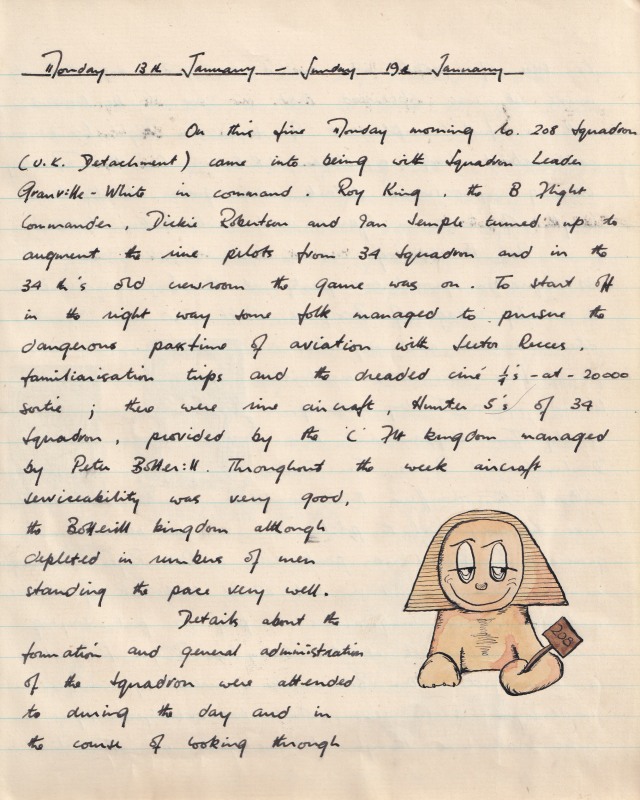 Monday 13th January - Sunday 19th January
On this fine Monday morning No. 208 Squadron
(U.K. Detachment) came into being with Squadron Leader
Granville-White in command. Roy King, the B Flight
Commander, Dickie Robertson and Ian Semple turned up to
augment the nine pilots from 34 Squadron and in the
34 th's old crewroom the game was on. To start off
in the right way some folk managed to pursue the
dangerous passtime of aviation with Sector Recces,
familiarisation trips and the dreaded ciné ¼'s-at-20000
sortie; there were nine aircraft, Hunter 5's of 34
Squadron, provided by the 'C' Flt kingdom managed
by Peter Botterill. Throughout the week aircraft
serviceability was very good,
the Botterill kingdom although
depleted in numbers of men
standing the pace very well.
Details about the
formation and general administration
of the Squadron were attended
to during the day and in
the course of looking through
208